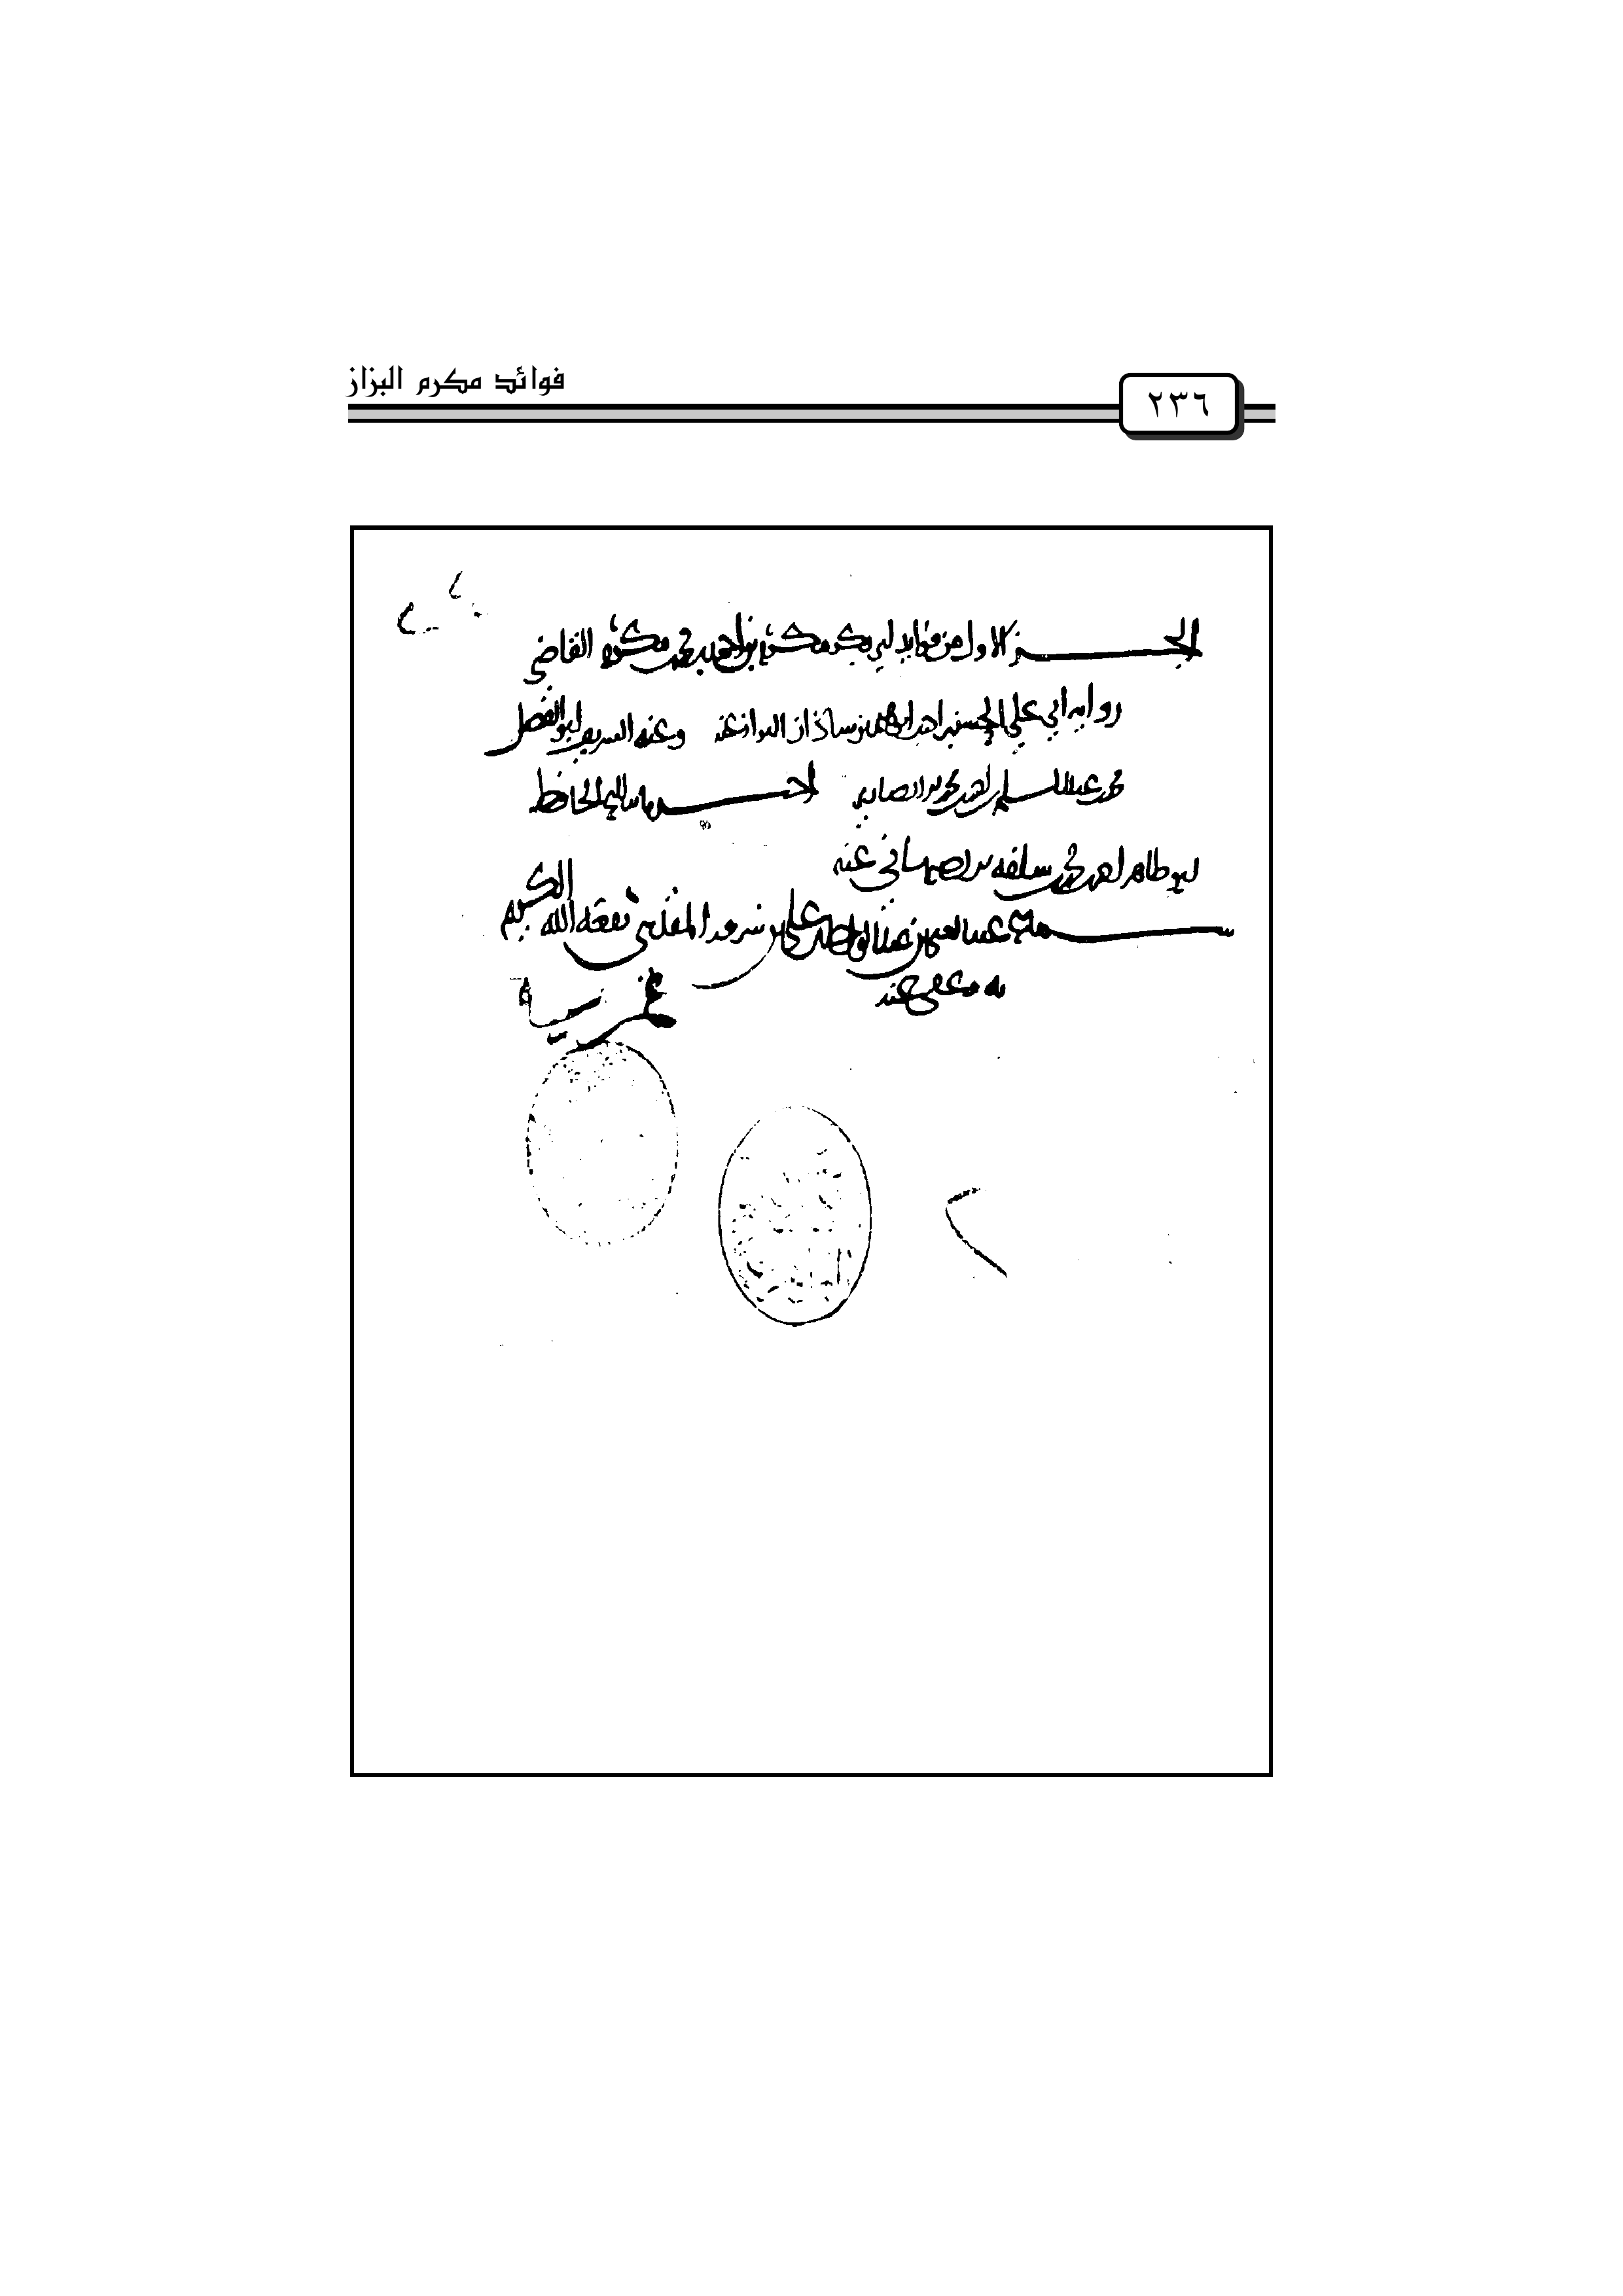 فوائد مكرم البزاز
٢٣٦
الجـــــزء الاول من فوايد ابي بكر مكرم بن احمد بن محمد بن مكرم القاضي
رواية ابي علي الحسن بن احمد بن ابراهيم بن شاذان البزاز عنه وعنه الشريف ابو الفضل
محمد بن عبد السلام بن احمد بن محمد الانصاري اخبرنا به الشيخ الحافظ
ابو طاهر احمد بن محمد بن سلفه الاصبهاني عنه
سماع عبد الغني بن عبد الواحد بن علي بن سرور المقدسي نفعه الله الكريم
به وعفى عنه